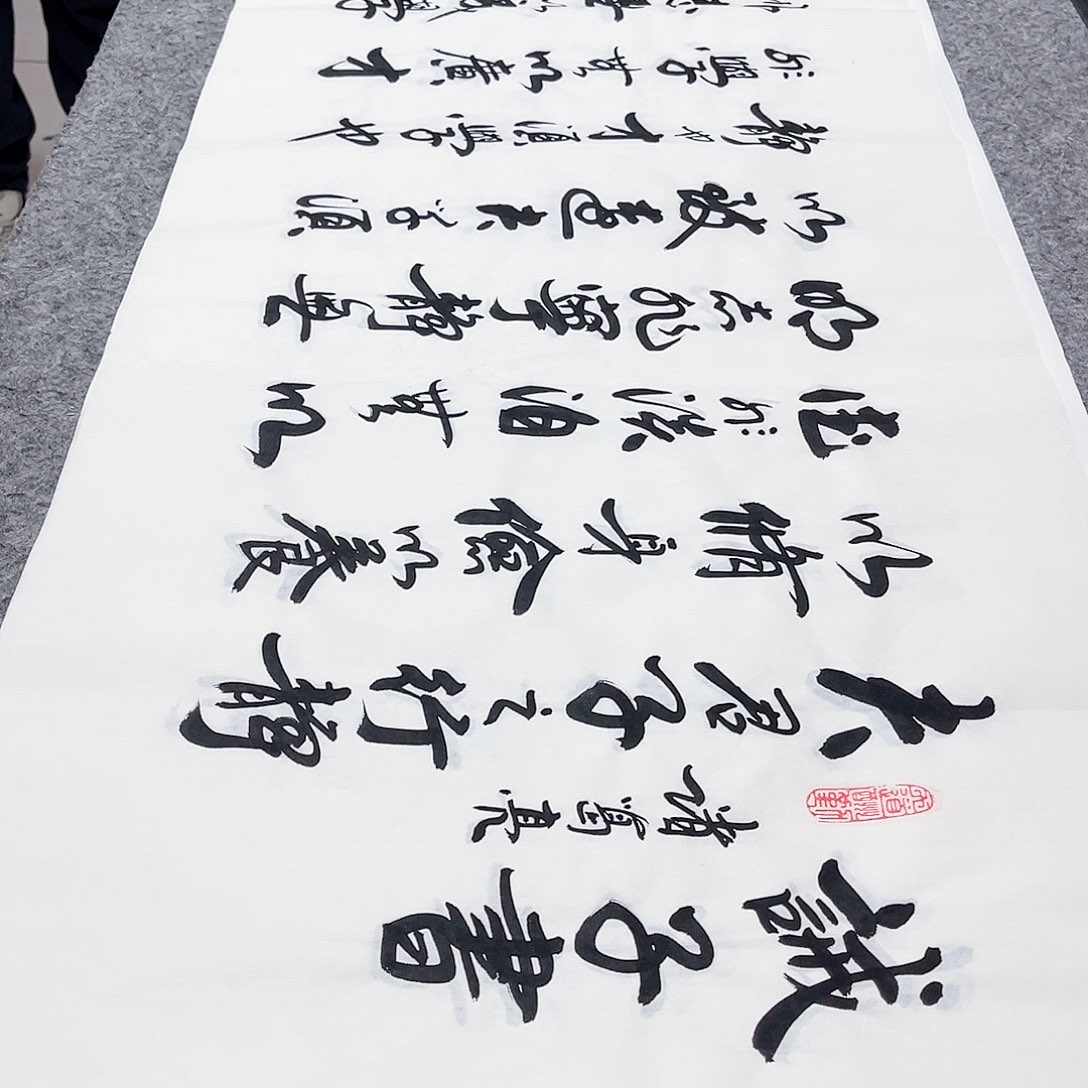 誡子書
諸葛亮
夫君子之行靜
以脩身儉以養
德非淡泊無以
明志非寧靜無
以致遠夫學須
靜也才須學也
非學無以廣才